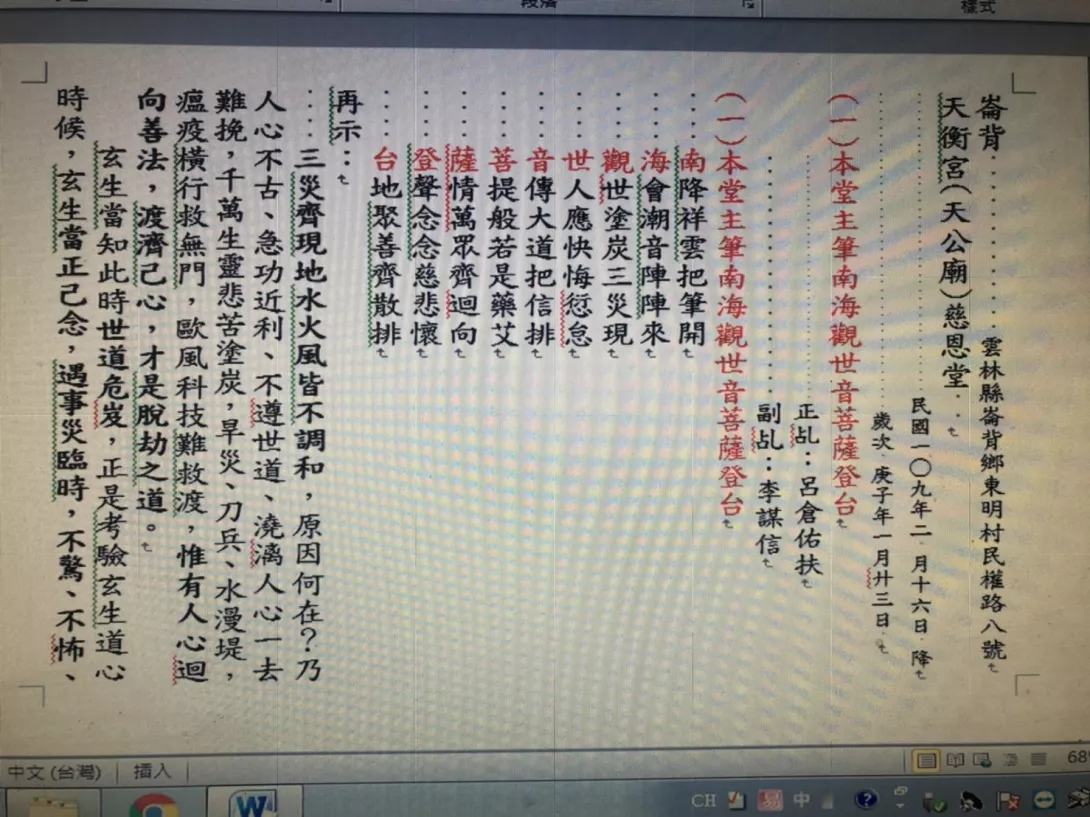 段落
樣式
崙背 雲林縣崙背鄉東明村民權路八號
天衡宮(天公廟)慈恩堂
民國一〇九年二 月十六日 降
歲次 庚子年一月廿三日
(一)本堂主筆南海觀世音菩薩登台
正乩:呂倉佑扶
副乩:李謀信
(一)本堂主筆南海觀世音菩薩登台
南降祥雲把筆開
海會潮音陣陣來
觀世塗炭三災現
世人應快悔愆怠
音傳大道把信排
菩提般若是藥艾
薩情萬眾齊迴向
登聲念念慈悲懷
台地聚善齊散排
再示:
三災齊現地水火風皆不調和,原因何在?乃
人心不古、急功近利、不遵世道、澆漓人心一去
難挽,千萬生靈悲苦塗炭,旱災、刀兵、水漫堤,
瘟疫橫行救無門,歐風科技難救渡,惟有人心迴
向善法,渡濟己心,才是脫劫之道。
玄生當知此時世道危岌,正是考驗玄生道心
時候,玄生當正己念,遇事災臨時,不驚、不怖、
中文(台灣) 插入 68%
CH 易 中